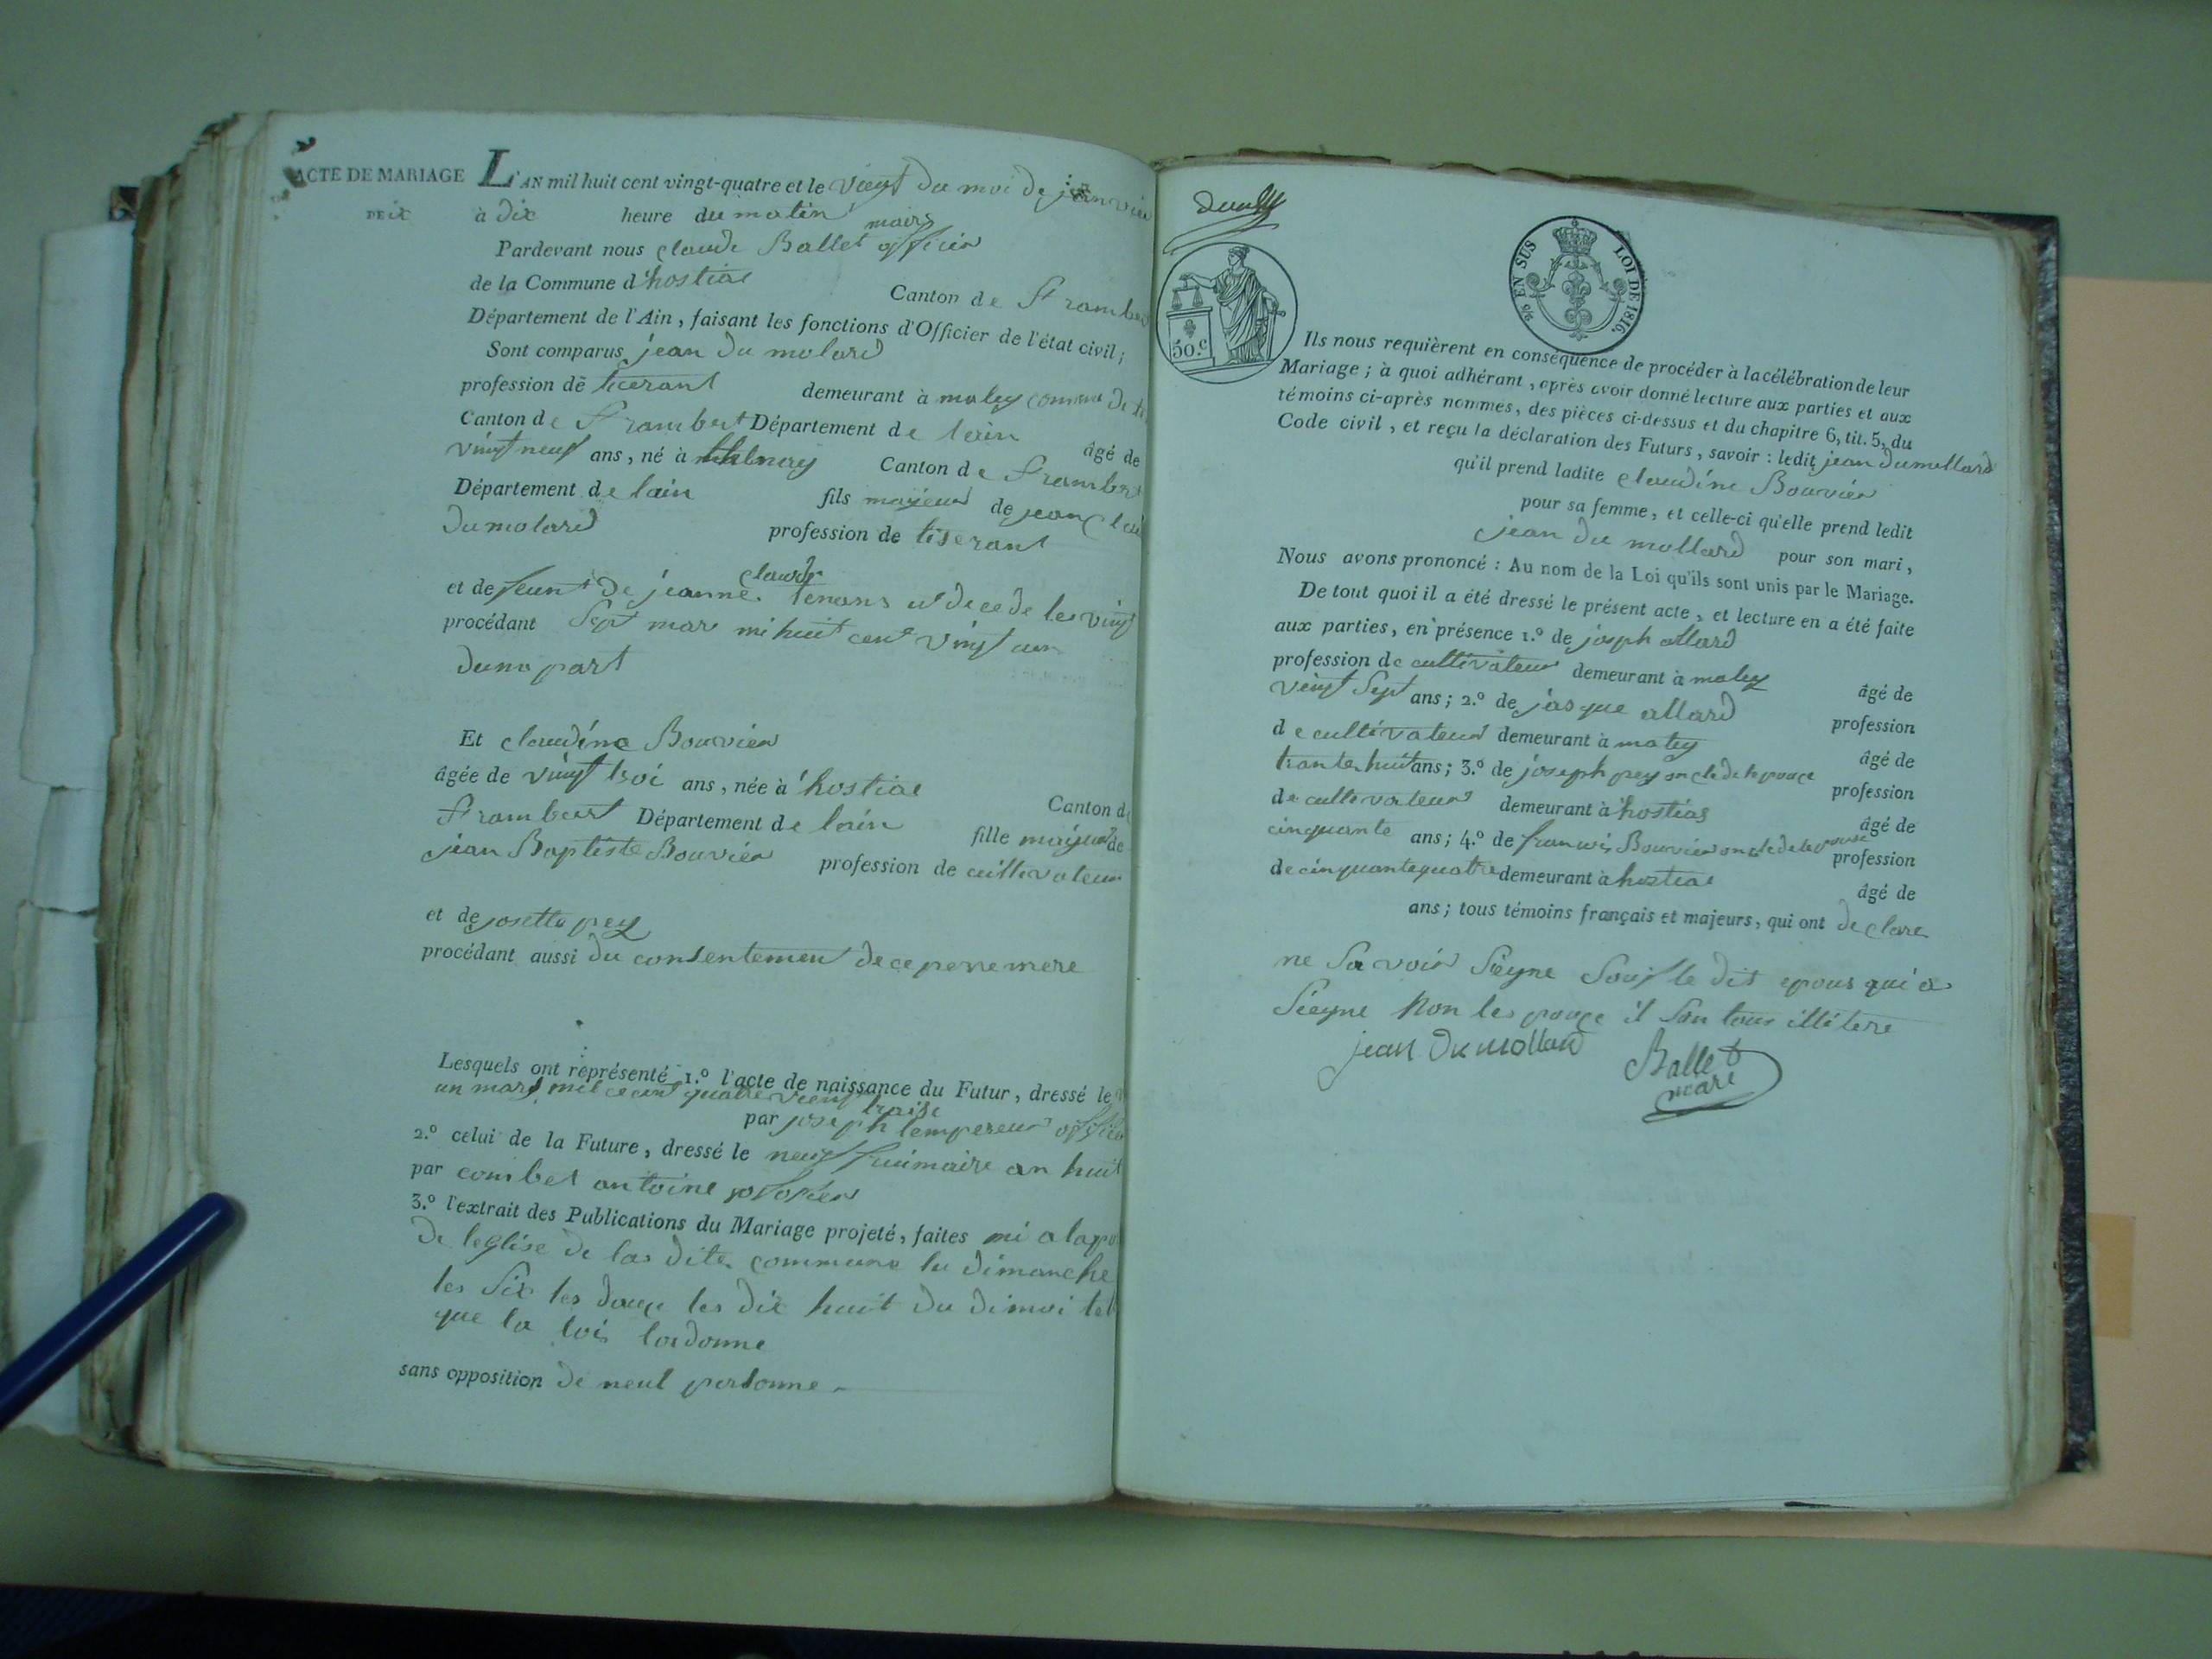 ACTE DE MARIAGE L'AN mil huit cent vingt-quatre et le viengt du moi de janvier
DE ix à dix heure du matin
maire
Pardevant nous claude Ballet officier
de la Commune d'hostiae Canton de St rambert
Département de l'Ain, faisant les fonctions d'Officier de l'état civil;
Sont comparus jean du molard
profession de ticerant demeurant à maley commune de
Canton de St rambert Département de lain âgé de
vingt neuf ans, né à Canton de St rambert
Département de lain fils majeur de jean
dumolard profession de tiserant
claude
et de feunt de jeanne decede les vingt
procédant Sept mar mi huit cent vingt un
dune part
Et claudine Bouvier
âgée de vingt troi ans, née à hostiae Canton de
St rambert Département de lain fille majeur de
jean Baptiste Bouvier profession de cultivateur
et de josette pey
procédant aussi du consentement de ce pere mere
Lesquels ont représenté 1.º l'acte de naissance du Futur, dressé le
un mars mil cent quatre vient traise
par joseph lempereur officier
2.º celui de la Future, dressé le neuf frimaire an huit
par combet antoine
3.º l'extrait des Publications du Mariage projeté, faites mi a la
de leglise de las dite commune lu dimanche
les Six les douze les dix huit du dimoi tel
que la lois lordonne
sans opposition de neul personne
50.c
50 EN SUS LOI DE 1816.
Ils nous requièrent en conséquence de procéder à la célébration de leur
Mariage; à quoi adhérant, après avoir donné lecture aux parties et aux
témoins ci-après nommés, des pièces ci-dessus et du chapitre 6, tit. 5, du
Code civil, et reçu la déclaration des Futurs, savoir: ledit jean dumollard
qu'il prend ladite claudine Bouvier
pour sa femme, et celle-ci qu'elle prend ledit
jean du mollard pour son mari,
Nous avons prononcé: Au nom de la Loi qu'ils sont unis par le Mariage.
De tout quoi il a été dressé le présent acte, et lecture en a été faite
aux parties, en présence 1.º de joseph allard
profession de cultivateur demeurant à maley âgé de
vingt Sept ans; 2.º de jasque allard profession
de cultivateur demeurant à maley âgé de
trante huit ans; 3.º de joseph pey oncle de lepouce profession
de cultivateur demeurant à hostias âgé de
cinquante ans; 4.º de francois Bouvier oncle de lepouse profession
de cinquante quatre demeurant à hostiae âgé de
ans; tous témoins français et majeurs, qui ont declare
ne Savoir Sieyne Souf le dit epous qui a
Sieyne Non lepouce il Son tous illitere
jean Du mollard Ballet
mare